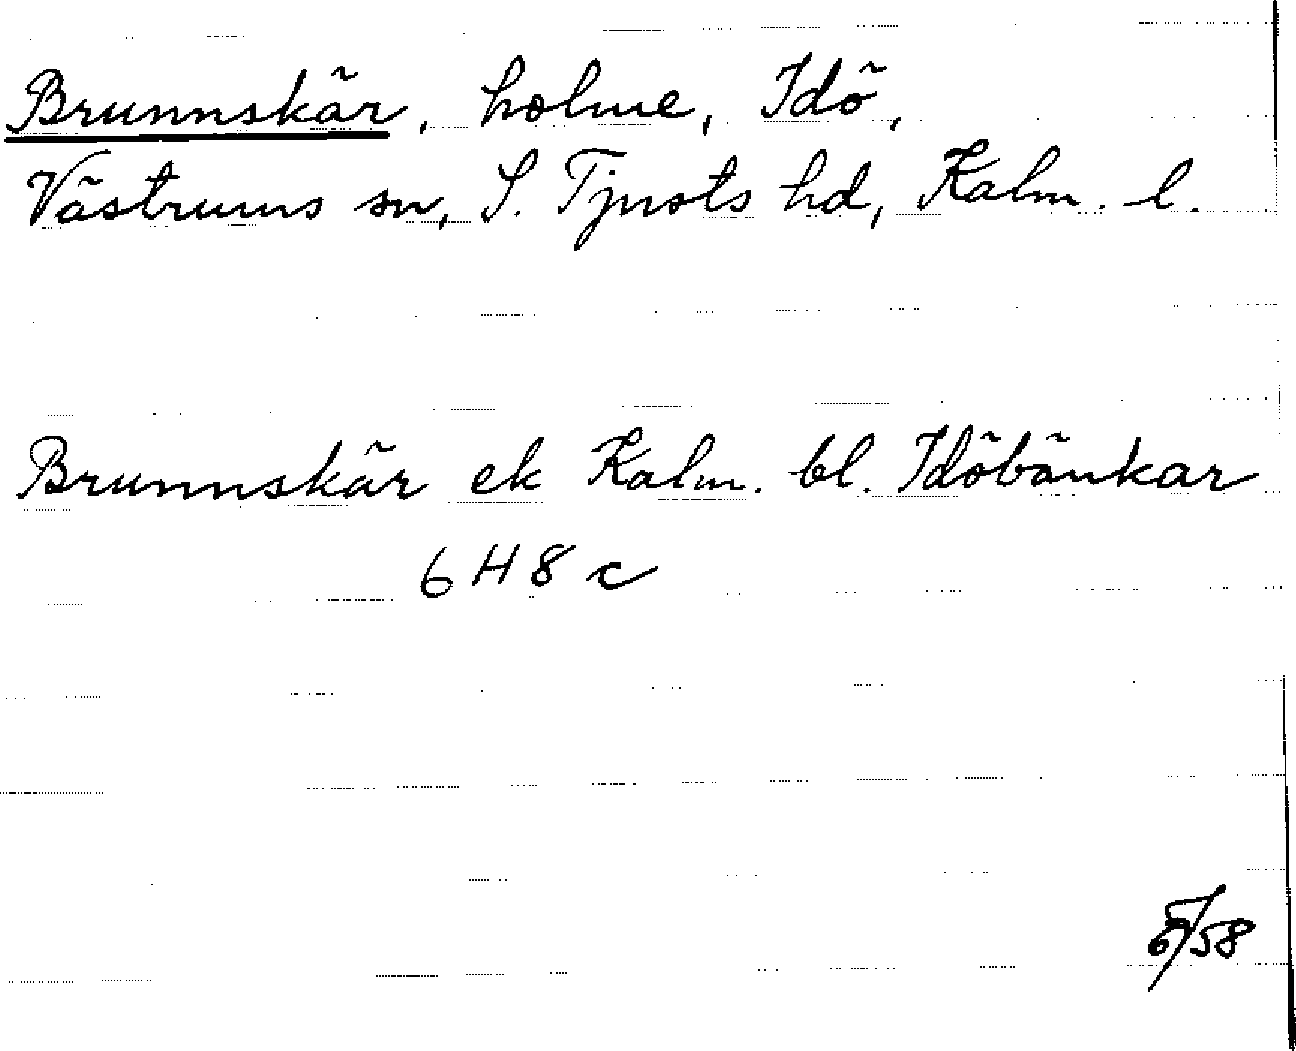 Brunnskär, holme, Idö,
Västrums sn, S. Tjusts hd, Kalm. l.
Brunnskär ek Kalm. bl. Idöbänkar
6 H 8 c